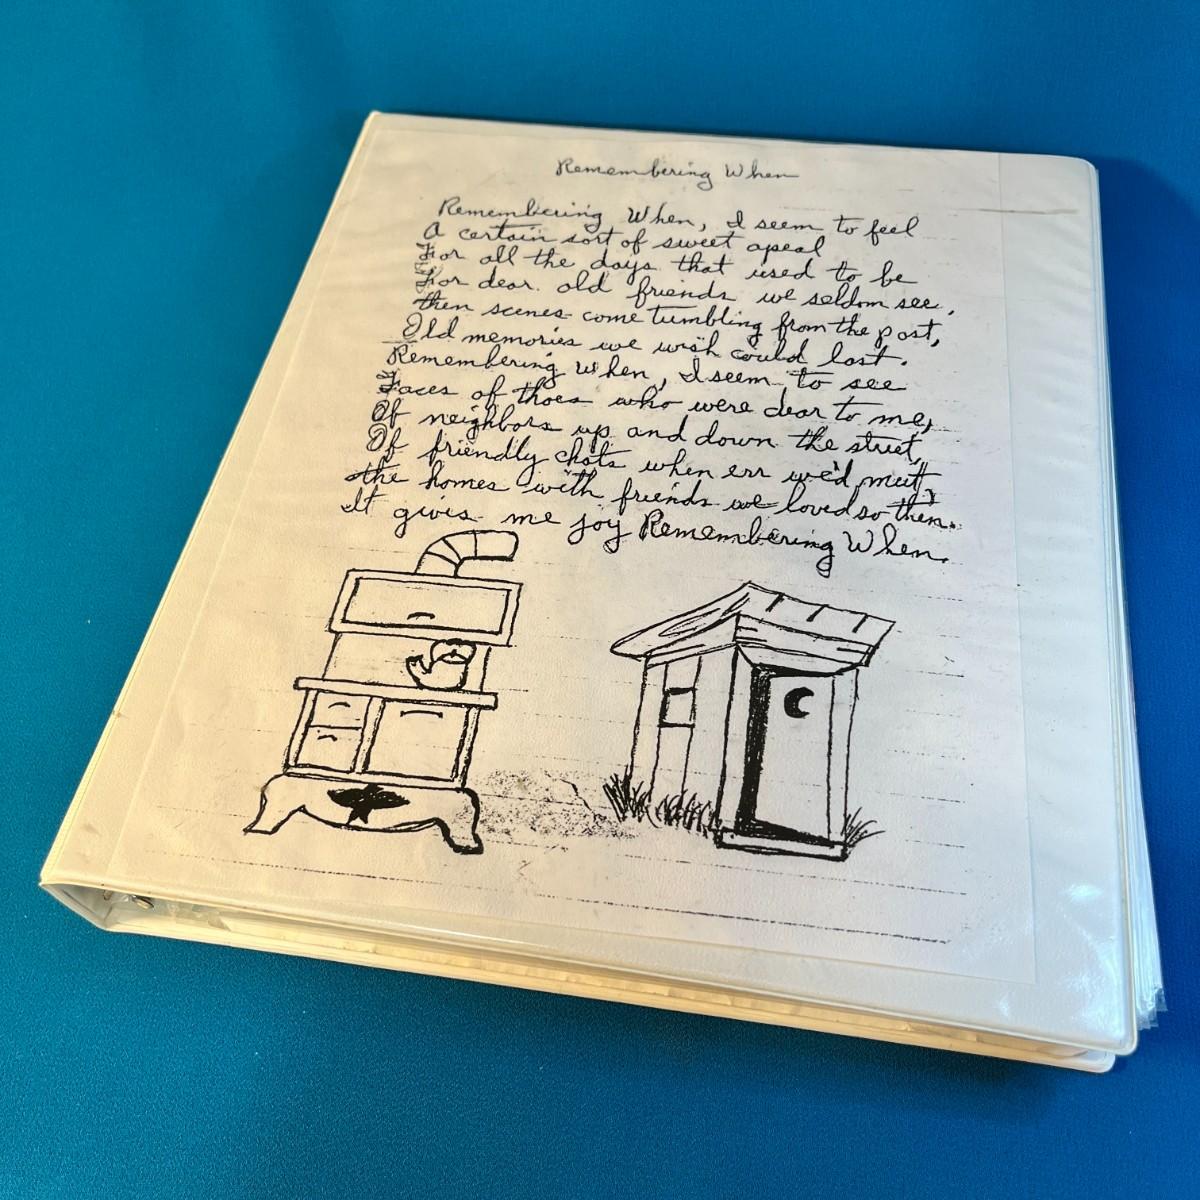 Remembering When
Remembering When, I seem to feel
A certain sort of sweet apeal
For all the days that used to be
For dear old friends we seldom see,
Then scenes come tumbling from the past,
Old memories we wish could last.
Remembering when, I seem to see
Faces of thoes who were dear to me,
Of neighbors up and down the street,
Of friendly chats when err we'd meet,
The homes with friends we loved so then.
It gives me joy Remembering When.